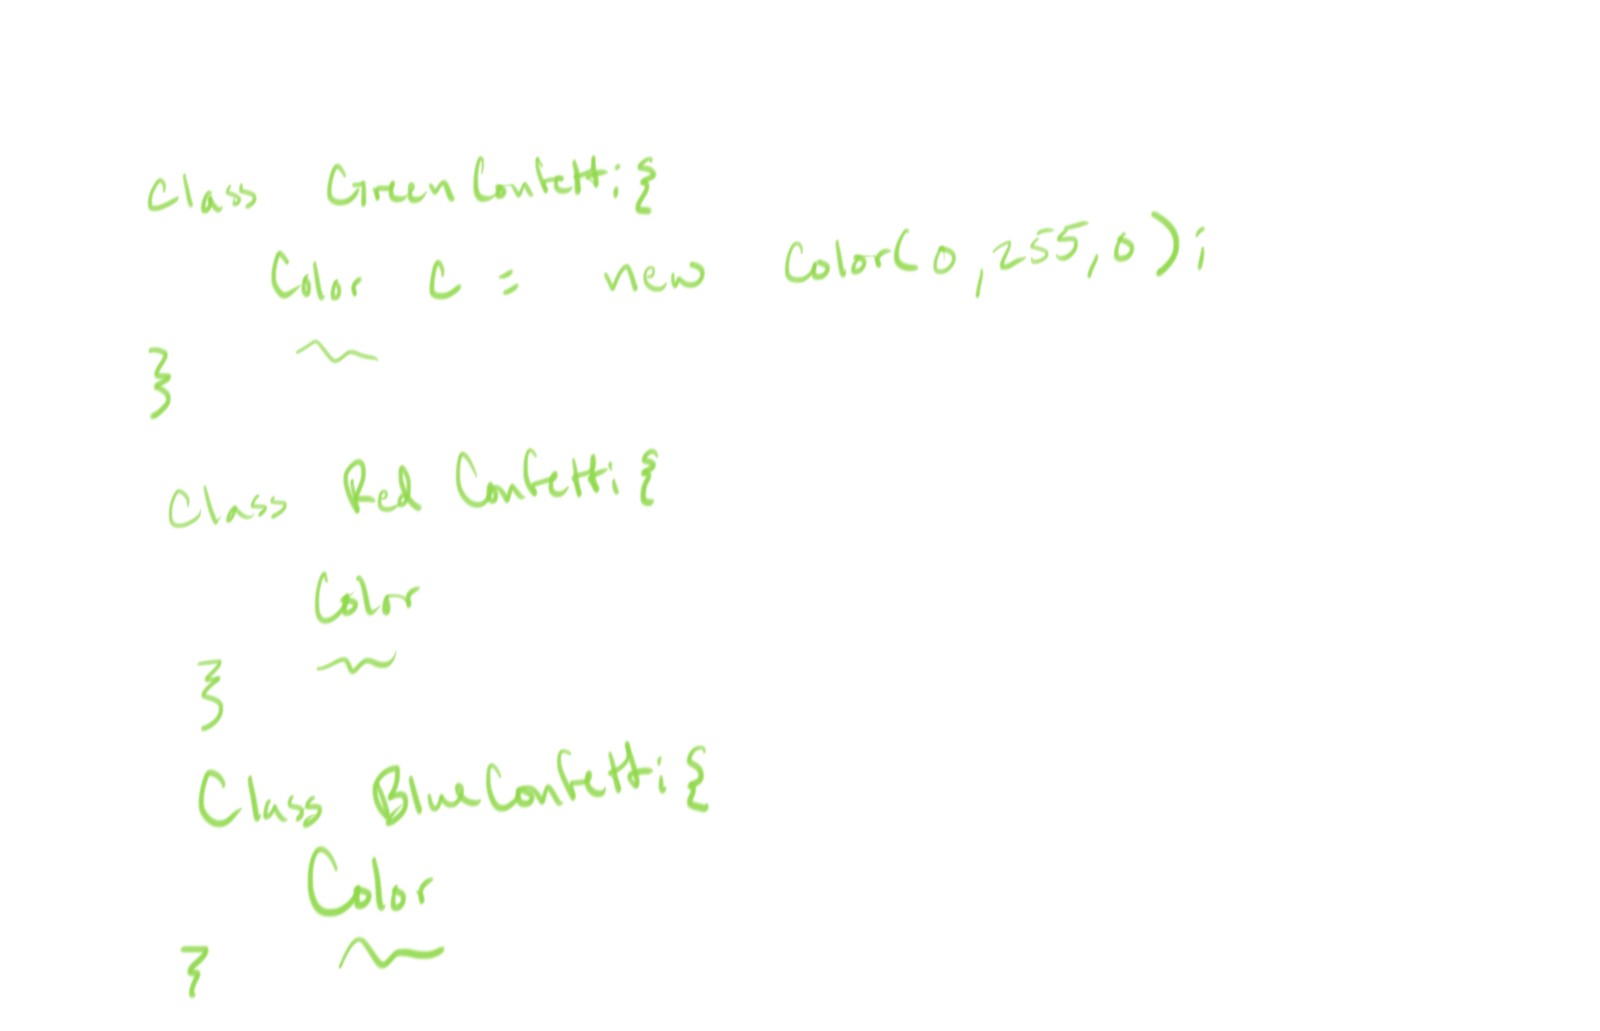 class GreenConfetti{
Color c = new Color(0,255,0);
}
class RedConfetti{
Color
}
Class BlueConfetti{
Color
}